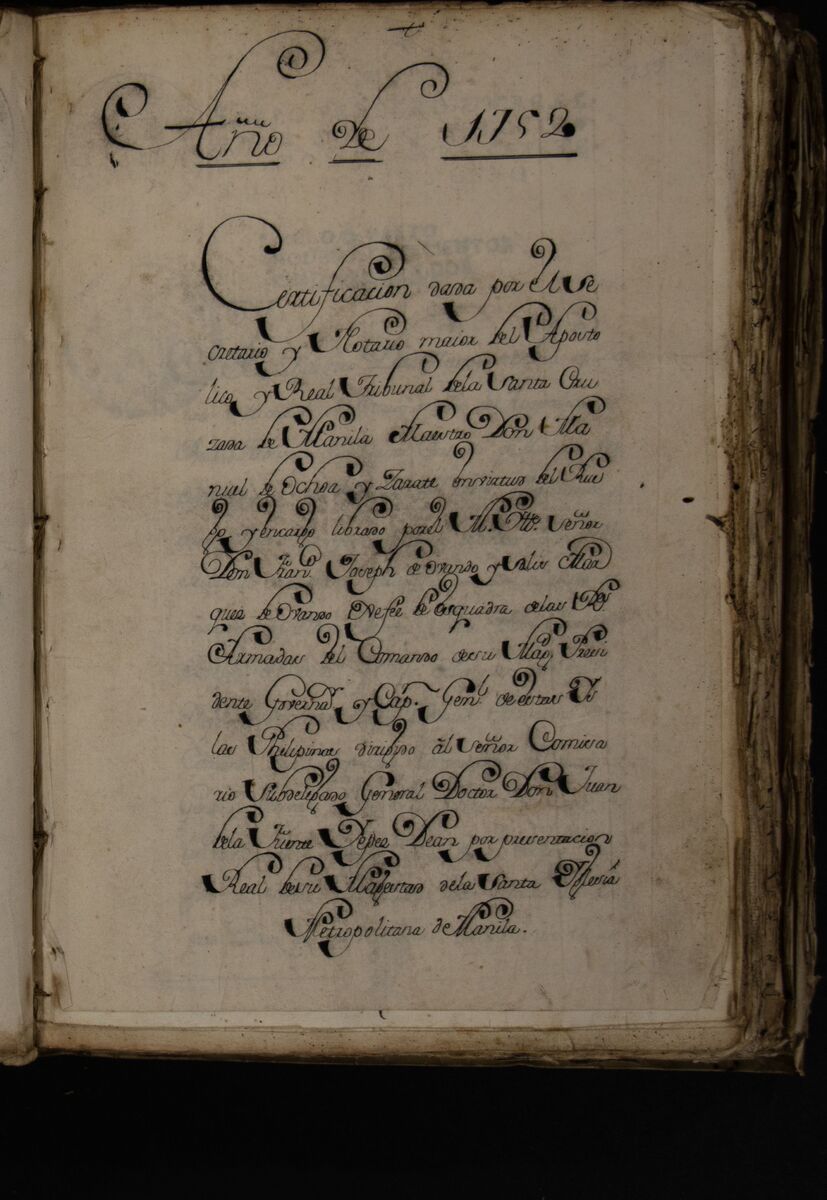 Año de 1752
Certificacion dada por el Se
cretario y Notario maior del Aposto
lico y Real Tribunal dela Santa Cru
zada de Manila Maestro Don Ma
nuel de Ochoa y Zarate en virtud del Rue
go y encargo librado por el M. Ytt.e Señor
Don Fran.co Joseph de Ovando y Solis Mar
ques de Ovando Xefee de esquadra delas R.s
Armadas del Comando de su Mag.d Presi
dente Governad.r y Cap.n Gen.l de estas Ys
las Philipinas dirigido al Señor Comisa
rio Subdelegado General Doctor Don Juan
dela Fuente Yepes Dean por presentacion
Real de su Magestad dela Santa Yglesia
Metropolitana de Manila.